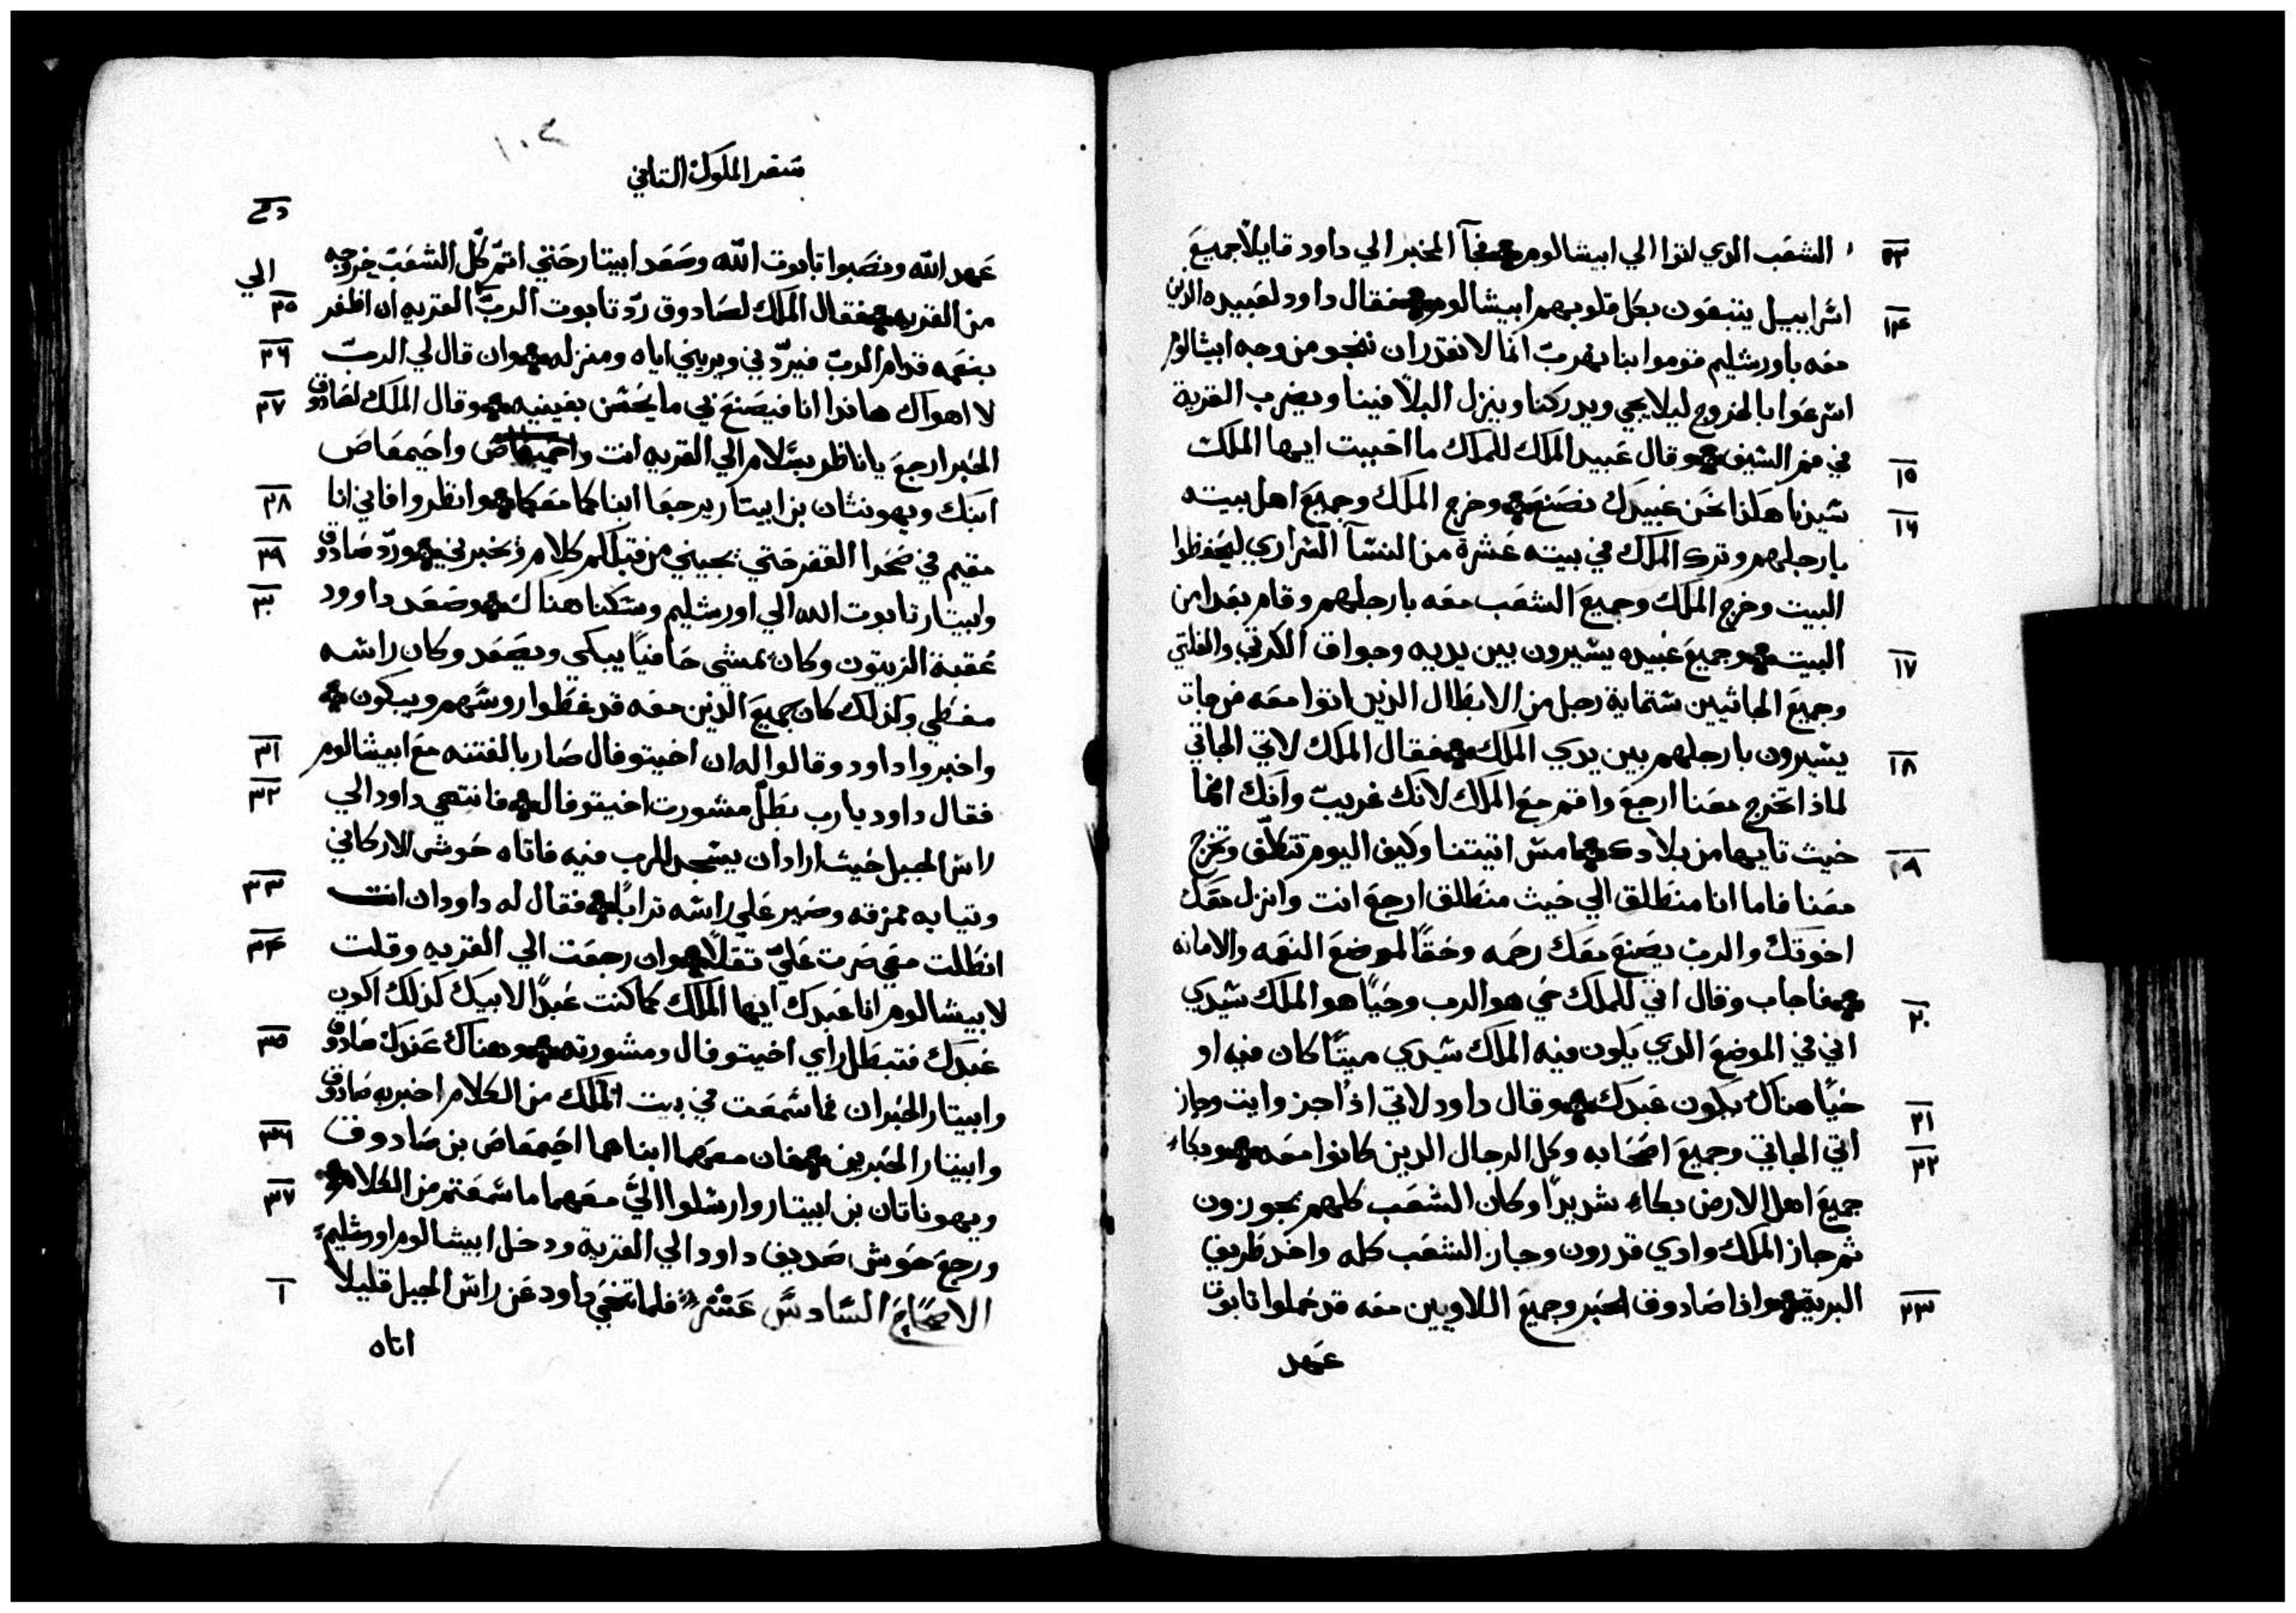 ١٣ الشعب الدي اتوا الي ابيشالوم فجآ المخبر الي داود قايلاً جميع
١٤ اسراييل يتبعون بكل قلوبهم ابيشالوم فقال داود لعبيده الذين
معه باورشليم قوموا بنا نهرب انما لا نقدر ان ننجو من وجه ابيشالوم
اسرعوا بالخروج ليلا يجي ويدركنا وينزل البلا فينا ويضرب القرية
١٥ في فم السيف وقال عبيد الملك للملك ما احببت ايها الملك
١٦ سيدنا هكذا نحن عبيدك نصنع وخرج الملك وجميع اهل بيته
بارجلهم وترك الملك في بيته عشرة من النسآ السراري ليحفظوا
البيت وخرج الملك وجميع الشعب معه بارجلهم وقام بعدا من
١٧ البيت وجميع عبيده يسيرون بين يديه وجواق الكرتي والفلتي
وجميع الجاثيين ستماية رجل من الابطال الذين اتوا معه من جات
١٨ يسيرون بارجلهم بين يدي الملك فقال الملك لاتي الجاتي
لماذا تخرج معنا ارجع واقم مع الملك لانك غريب وانك انما
١٩ خيث تايها من بلادك امس اتيتنا وكيف اليوم تتكلف وتخرج
معنا فاما انا منطلق الي حيث منطلق ارجع انت وانزل معك
اخوتك والرب يصنع معك رحمه وحقاً لموضع النعمه والامانه
٢٠ فاجاب وقال اتي للملك حي هو الرب وحياً هو الملك سيدي
اني في الموضع الدي يكون فيه الملك سيدي ميتاً كان فيه او
٢١ حياً هناك يكون عبدك وقال داود لاتي اذاً جز وايت وجاز
٢٢ اتي الجاتي وجميع اصحابه وكل الرجال الدين كانوا معه وبكاء
جميع اهل الارض بكاء شديداً وكان الشعب كلهم يجوزون
ثم جاز الملك وادي قدرون وجاز الشعب كله واخد طريق
٢٣ البرية واذا صادوق الحبر وجميع اللاويين معه قد حملوا تابوت
عهد
١٠٤
سفر الملوك التاني
عهد الله ونصبوا تابوت الله وصعد ابيتار حتي اتم كل الشعب خروجه
٢٥ من القريه فقال الملك لصادوق ردّ تابوت الرب الي القريه ان اظفر
٢٦ بنعمه قدام الرب فيردّني ويريني اياه ومنزله وان قال لي الرب
٢٧ لا اهواك هانذا انا فيصنع بي ما يحسن بعينيه وقال الملك لصادوق
الحبر ارجع يا ناظر بسلام الي القريه انت واحيمعاص
٢٨ ابنك ويهونثان بن ابيتار يرجعا ابناكما معكما وانظروا فاني انا
٢٩ مقيم في صحرا القفر حتي يجيني من قبلكم كلام يخبرني وردّ صادوق
٣٠ وابيتار تابوت الله الي اورشليم وسكنا هناك وصعد داوود
عقبة الزيتون وكان يمشي حافياً يبكي ويصعد وكان راسه
مغطي وكذلك كان جميع الذين معه قد غطوا روسهم ويبكون
٣١ واخبروا داود وقالوا له ان اخيتوفال صار بالفتنه مع ابيشالوم
٣٢ فقال داود يا رب بطل مشورت اخيتوفال فانتهي داود الي
راس الجبل حيث اراد ان يسجد للرب فيه فاتاه حوشي الاركاني
٣٣ وتيابه ممزقه وصير علي راسه تراباً فقال له داود ان انت
٣٤ انطلقت معي صرت عليّ تقلاً وان رجعت الي القريه وقلت
لابيشالوم انا عبدك ايها الملك كما كنت عبداً لابيك كذلك اكون
٣٥ عبدك فتبطل راي اخيتوفال ومشورته وهناك عندك صادوق
وابيتار الحبران فما سمعت في بيت الملك من الكلام اخبر به صادوق
٣٦ وابيتار الحبرين فان معهما ابناهما احيمعاص بن صادوق
٣٧ ويهوناتان بن ابيتار وارسلوا اليّ معهما ما سمعتم من الكلام
ورجع حوشي صديق داود الي القرية ودخل ابيشالوم اورشليم
١ الاصحاح السادس عشر فلما تنحي داود عن راس الجبل قليلاً
اتاه